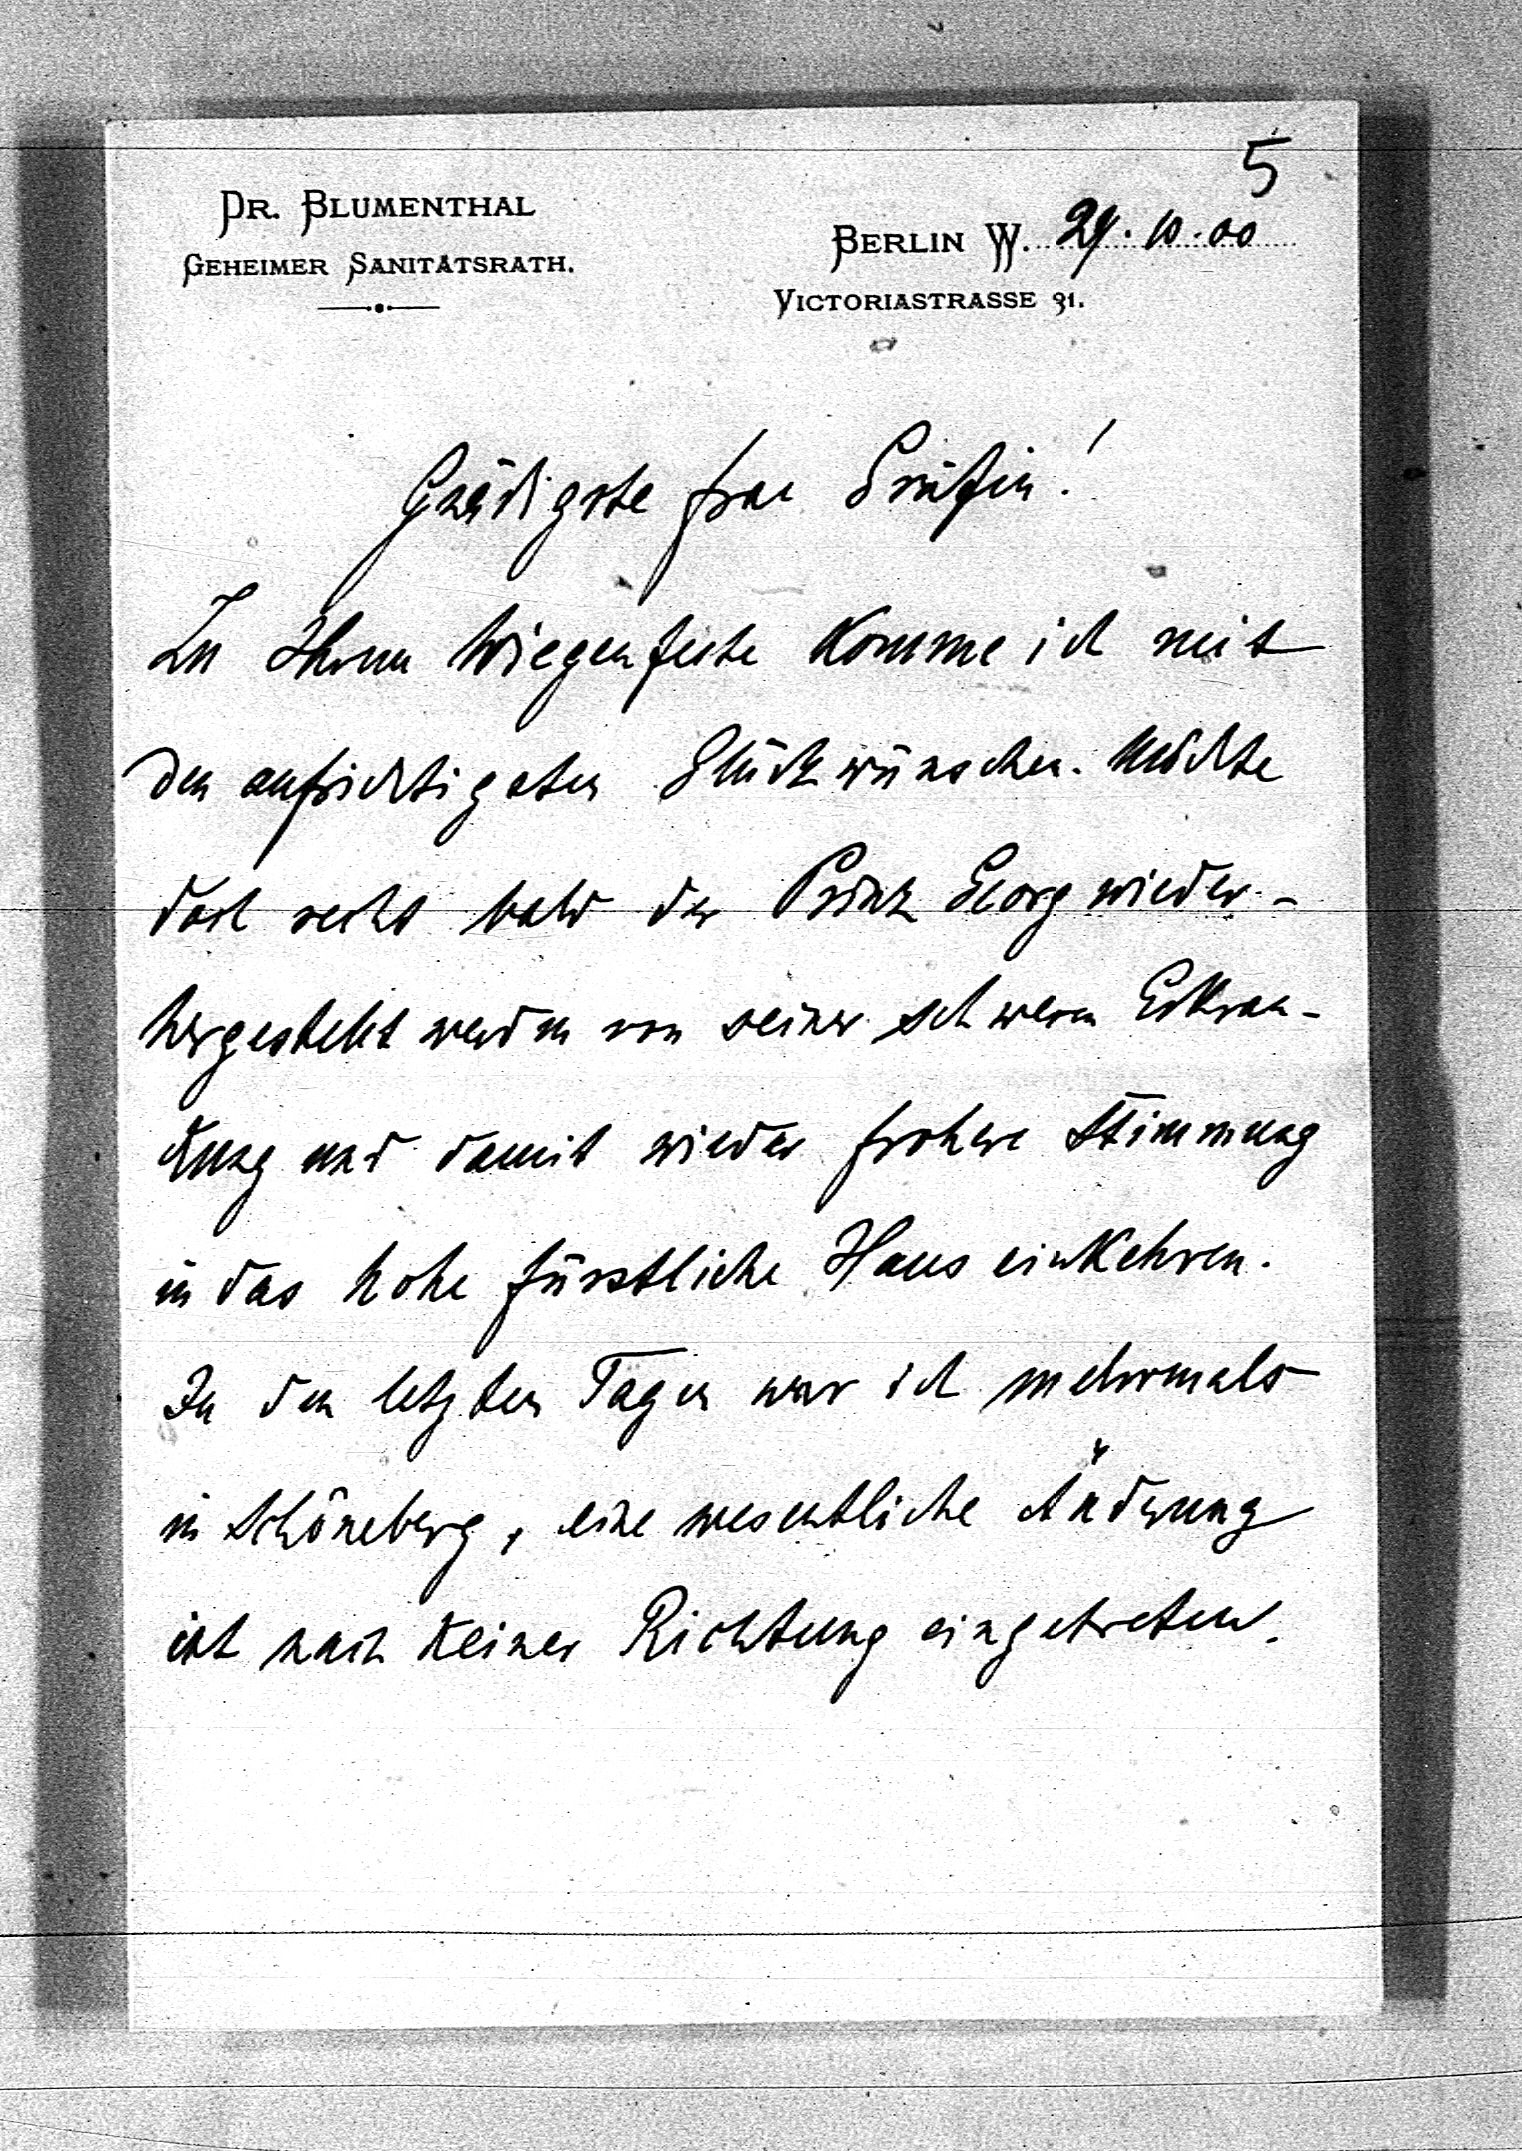 5
DR. BLUMENTHAL
GEHEIMER SANITÄTSRATH.
BERLIN W. 29.10.00
VICTORIASTRASSE 31.
Gnädigste Frau Gräfin!
Zu Ihrem Wiegenfeste komme ich mit
den aufrichtigsten Glückwünschen. Möchte
doch recht bald der Prinz Georg wieder-
hergestellt werden von seiner schweren Erkran-
kung und damit wieder frohere Stimmung
in das hohe fürstliche Haus einkehren.
In den letzten Tagen war ich mehrmals
in Schöneberg, eine wesentliche Änderung
ist nach keiner Richtung eingetreten.